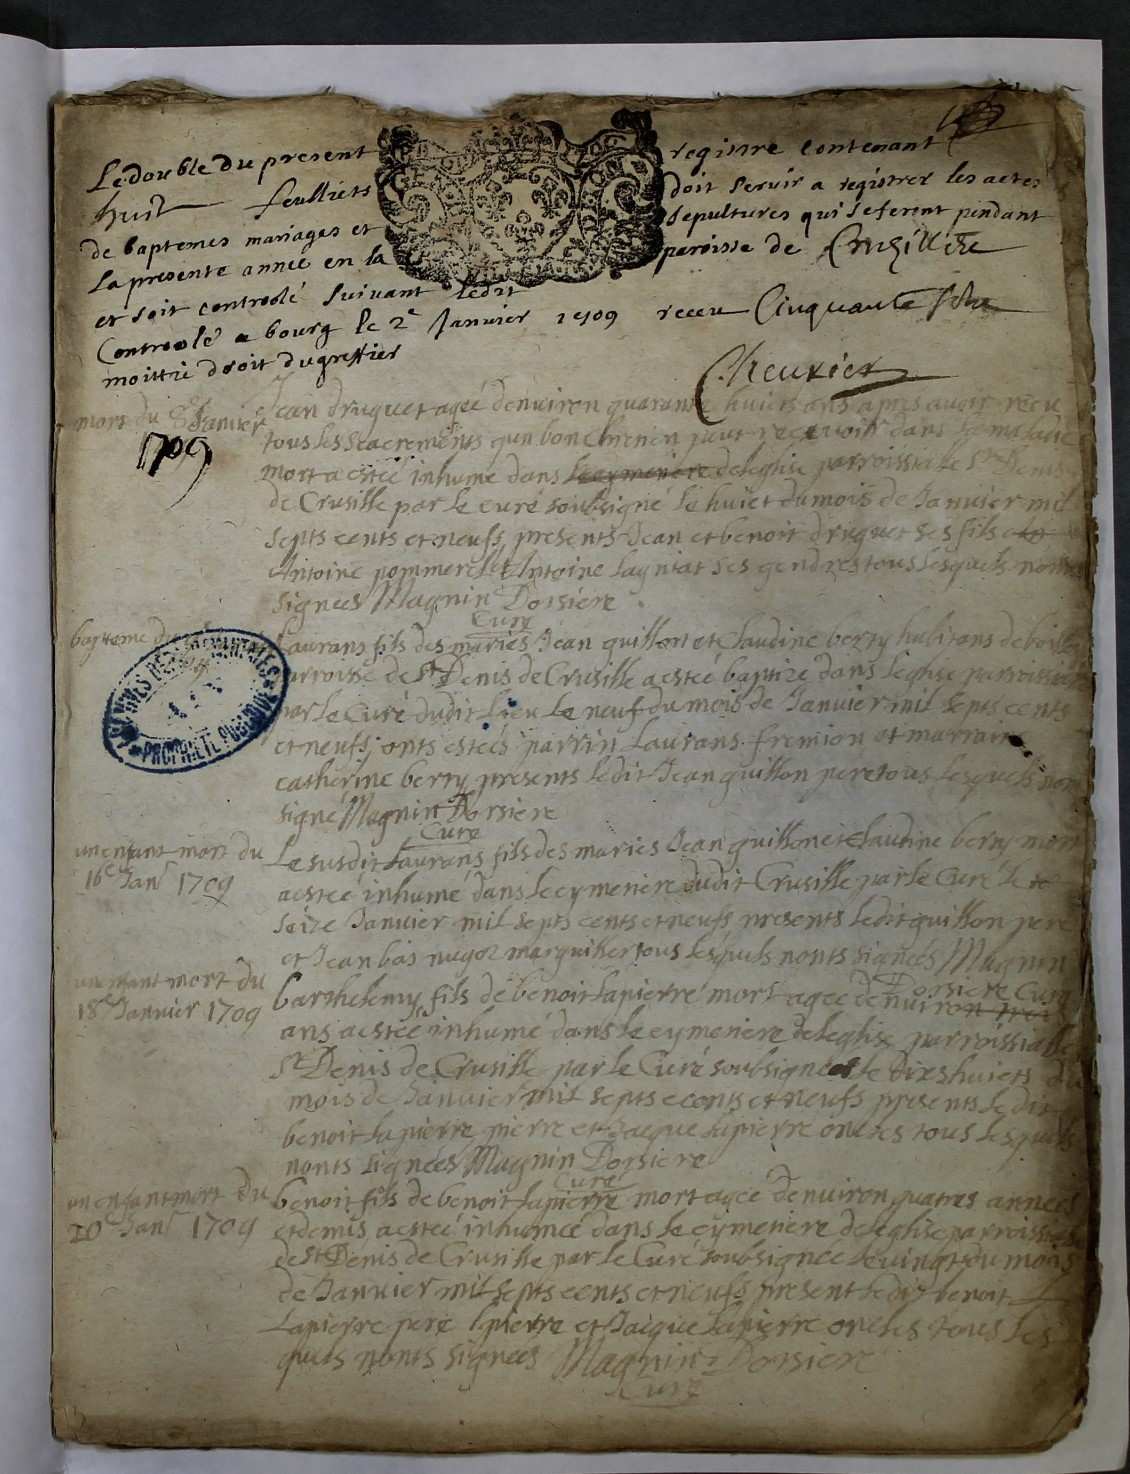 Le double du present registre contenant
huit feulliets doit servir a registrer les actes
de baptemes mariages et sepultures qui se feront pendant
la presente année en la paroisse de Cruzillie
et soit controolé suivant ledit
Controolé a bourg le 2e Janvier 1709 receu Cinquante
moittié droit du greffier
Cheurier
mort du 8e Janvier
1709
Jean druguet agéé denuiron quarante huicts ans apres avoir receu
tous les Sacrements qun bon Chretien peut recevoir dans sa maladie
mort a estéé inhumé dans le cymeniere deleglise parroissialle St Denis
de Crusille par le curé soubsigné le huict du mois de Janvier mil
septs cents et neufs presents Jean et benoit druguet ses fils
Antoine pommerel et Antoine lagniat ses gendres tous lesquels nonts
signees Magnin Dorsiere
Curé
bapteme du
Laurans fils des mariés Jean guillon et Claudine berry habitans de
parroisse de St Denis de Crusille a estéé baptizé dans leglise parroissialle
par le Curé dudit lieu le neuf du mois de Janvier mil septs cents
et neufs, onts estéés parrin Laurans fremion et marraine
catherine berry presents ledit Jean guillon pere tous lesquels non
signé Magnin Dorsiere
Curé
ARCHIVES DEPARTEMENTALES
AIN
PROPRIETE PUBLIQUE
un enfant mort du
16e Janr 1709
Le susdit Laurans fils des maries Jean guillon et Claudine berry mort
a estéé inhumé dans le cymeniere dudit Crusille par le Curé le
seize Janvier mil septs cents et neufs presents ledit guillon pere
et Jean bas nugoz marguillier tous lesquels nonts signéés Magnin
Dorsiere Curé
un enfant mort du
18e Janvier 1709
barthelemy fils de benoit lapierre mort agéé denuiron trois
ans a estéé inhumé dans le cymeniere deleglise parroissialle
St Denis de Crusille par le Curé soubsignéé le dixshuicts du
mois de Janvier mil septs cents et neufs presents ledit
benoit lapierre pierre et Jacque lapierre oncles tous lesquels
nonts signéés Magnin Dorsiere
Curé
un enfant mort du
20e Janr 1709
benoit fils de benoit lapierre mort agéé denuiron quatres années
et demis a estéé inhuméé dans le cymeniere deleglise parroissialle
de St Denis de Crusille par le Curé soubsignéé le vingt du mois
de Janvier mil septs cents et neufs present ledit benoit
Lapierre pere pierre et Jaique lapierre oncles tous les
quels nonts signees Magnin Dorsiere
Curé